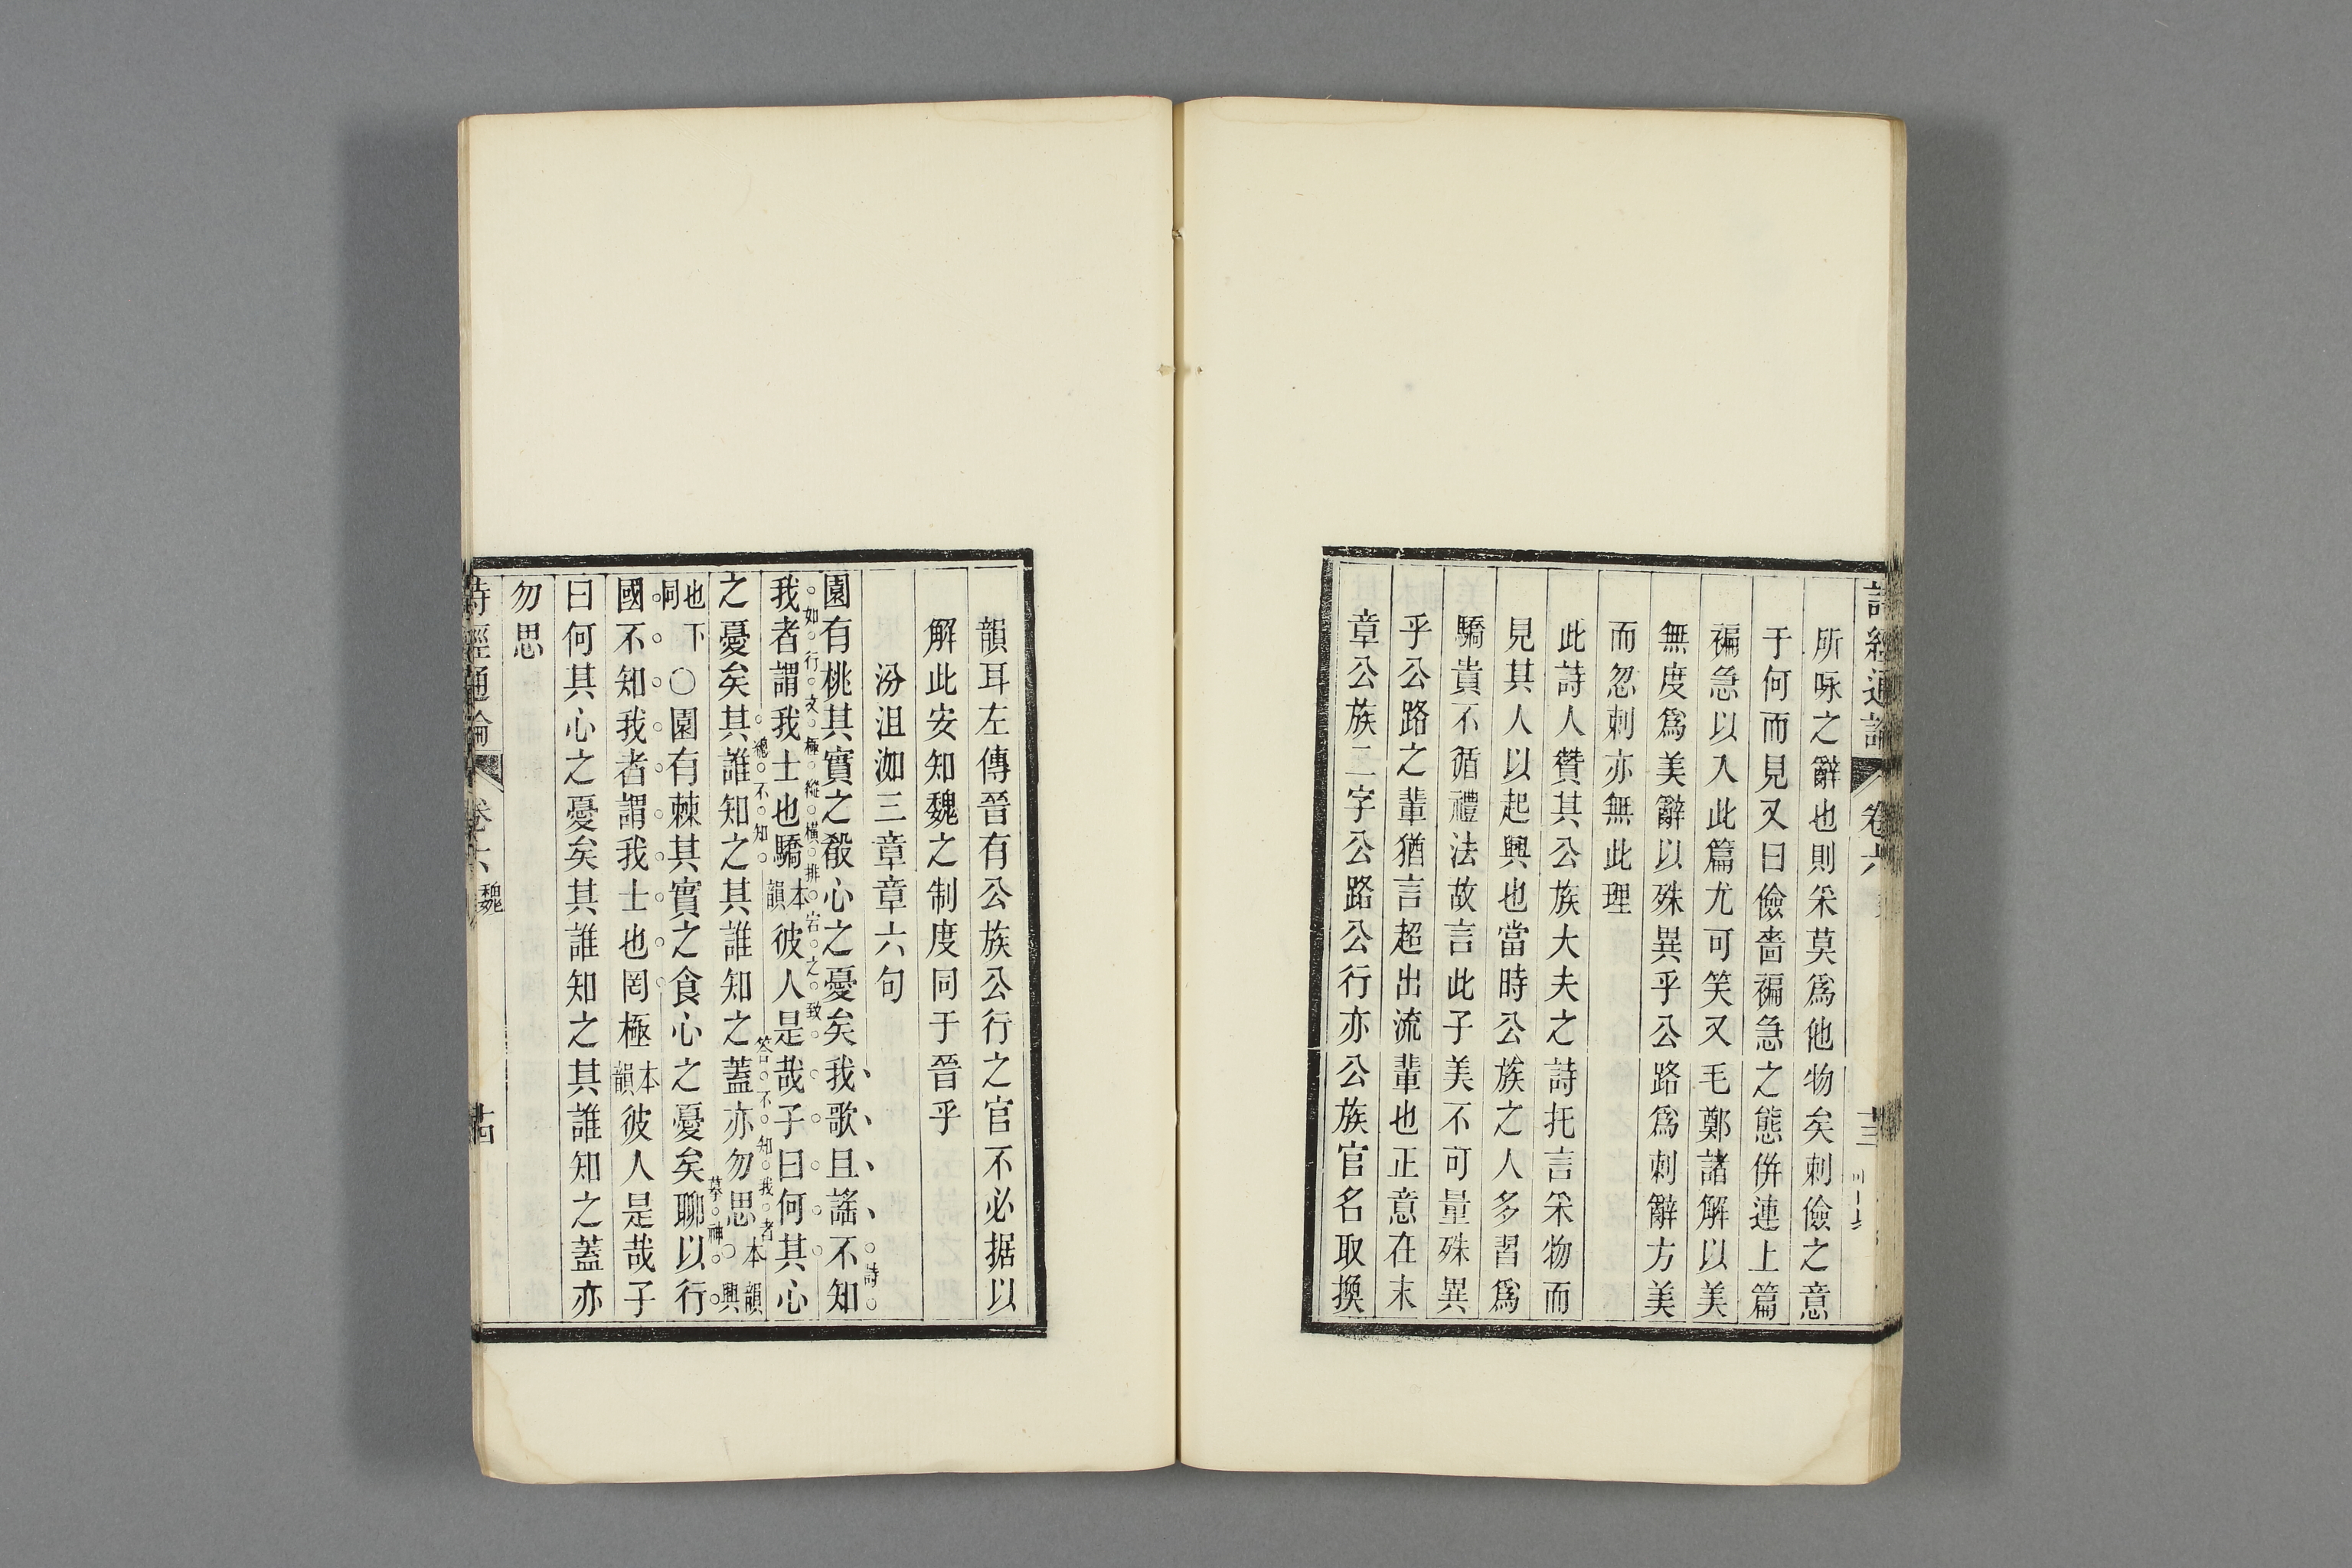 詩經通論 卷六 十三
所咏之辭也則采莫爲他物矣刺儉之意
于何而見又曰儉嗇褊急之態併連上篇
褊急以入此篇尤可笑又毛鄭諸解以美
無度爲美辭以殊異乎公路爲刺辭方美
而忽刺亦無此理
此詩人贊其公族大夫之詩托言采物而
見其人以起興也當時公族之人多習爲
驕貴不循禮法故言此子美不可量殊異
乎公路之輩猶言超出流輩也正意在末
章公族二字公路公行亦公族官名取換
韻耳左傳晉有公族公行之官不必据以
解此安知魏之制度同于晉乎
汾沮洳三章章六句
園有桃其實之殽心之憂矣我歌且謠不知
詩如行文極縱橫排宕之致
我者謂我士也驕本韻彼人是哉子曰何其心
總不知答不知我者
之憂矣其誰知之其誰知之蓋亦勿思本韻○興
也下同○園有棘其實之食心之憂矣聊以行
摹神
國不知我者謂我士也罔極本韻彼人是哉子
曰何其心之憂矣其誰知之其誰知之蓋亦
勿思
詩經通論 卷六 魏 十四